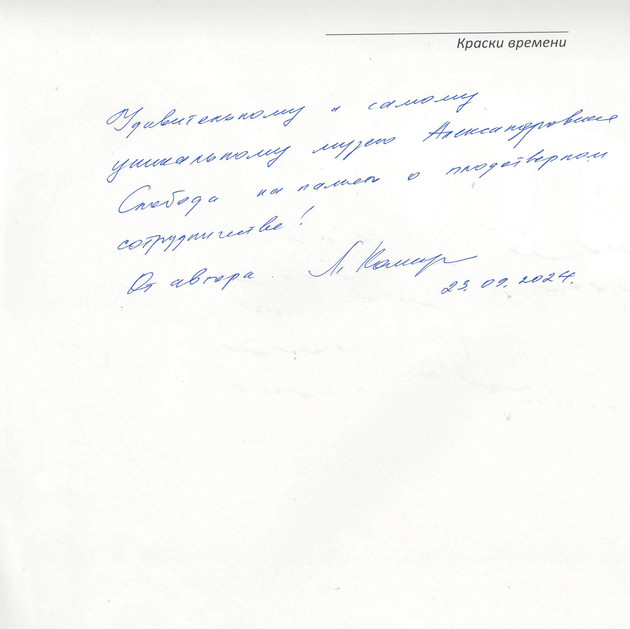 Краски времени
Удивительному и самому
уникальному музею Александровская
Слобода на память о плодотворном
сотрудничестве!
От автора. Л.
23.09.2024.